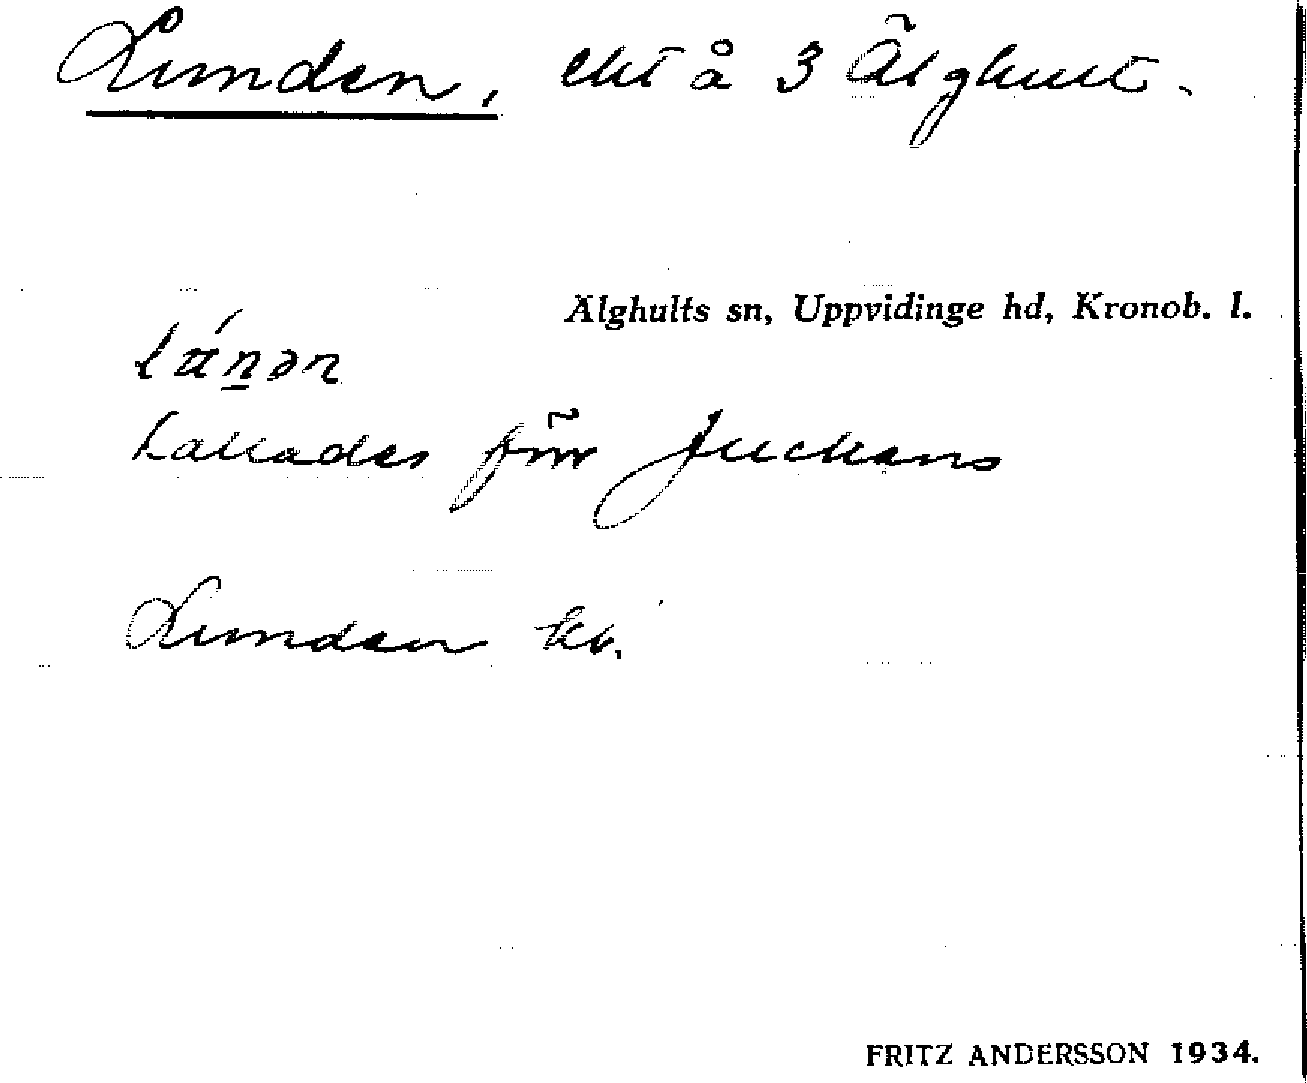 Lunden, lht å 3 Älghult.
Älghults sn, Uppvidinge hd, Kronob. l.
kallades förr Juckens
Lunden kb.
FRITZ ANDERSSON 1934.